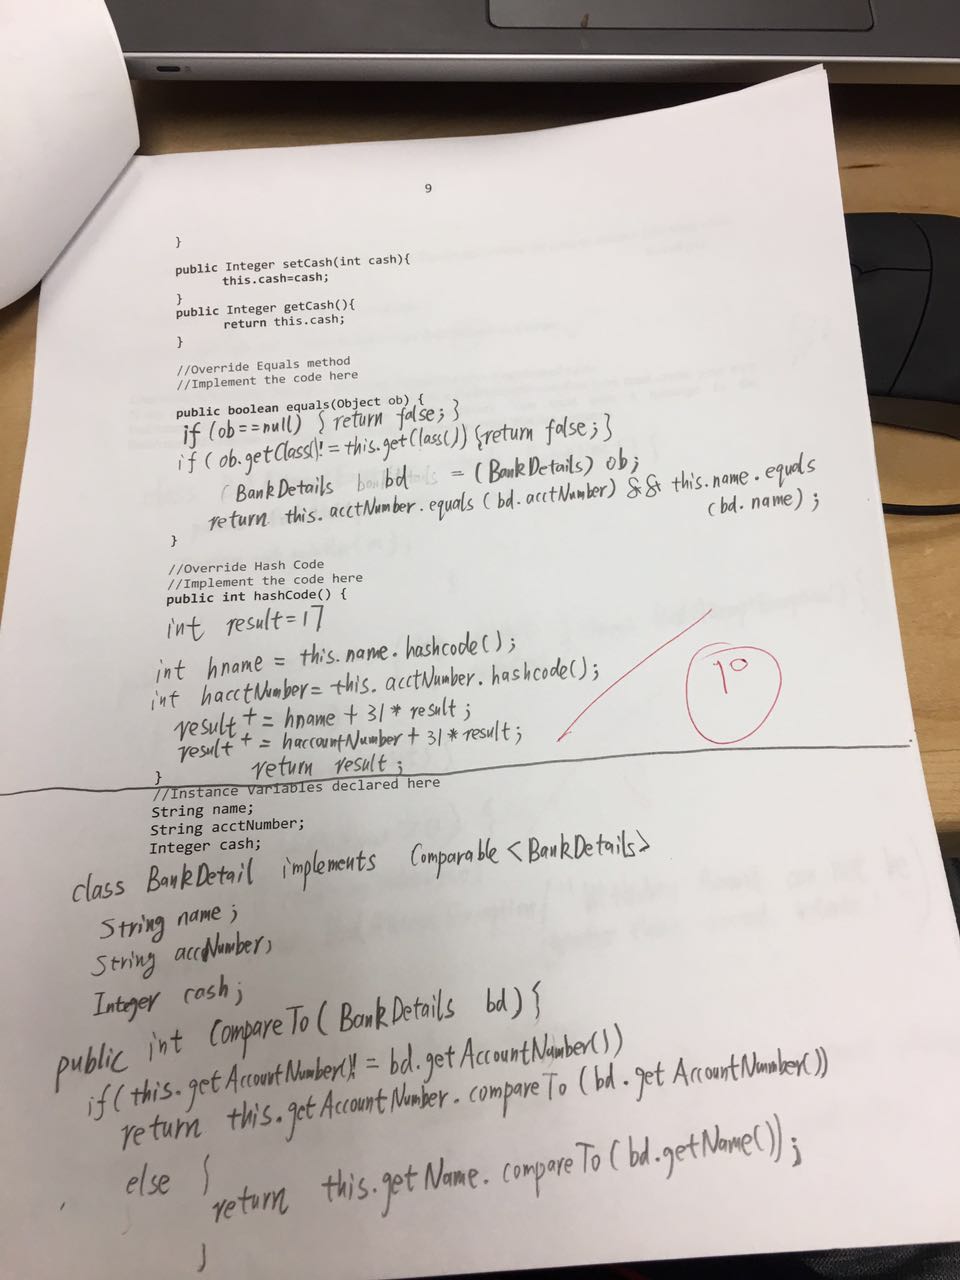 9
}
public Integer setCash(int cash){
this.cash=cash;
}
public Integer getCash(){
return this.cash;
}
//Override Equals method
//Implement the code here
public boolean equals(Object ob) {
if (ob==null) { return false; }
if ( ob.getClass()!= this.getClass()) {return false; }
(BankDetails bd = (BankDetails) ob;
return this. acctNumber.equals (bd.acctNumber) && this.name.equals
(bd. name) ;
}
//Override Hash Code
//Implement the code here
public int hashCode() {
int result=17
int hname = this.name.hashcode();
int hacctNumber= this. acctNumber.hashcode();
result += hname + 31* result ;
result += haccountNumber + 31* result;
return result ;
}
10
//Instance Variables declared here
String name;
String acctNumber;
Integer cash;
class BankDetail implements Comparable <BankDetails>
String name ;
String accNumber;
Integer cash;
public int CompareTo ( BankDetails bd) {
if( this.getAccountNumber()!= bd.getAccountNumber())
return this.getAccountNumber.compareTo (bd.getAccountNumber())
else {
return this.getName.compareTo(bd.getName());
}